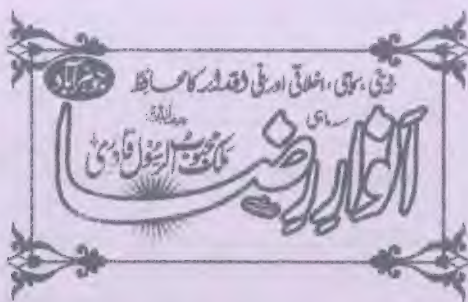 دینی، سماجی، اخلاقی اور ملی اقدار کا محافظ
جوہر آباد
سہ ماہی
انوار رضا
ملک محبوب الرسول قادری